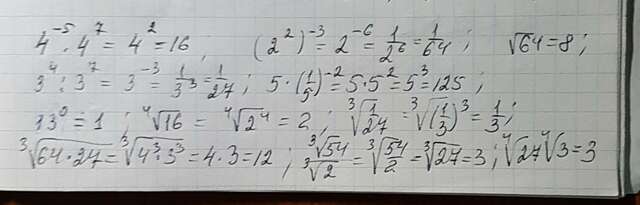 4⁻⁵ · 4⁷ = 4² = 16 ; (2²)⁻³ = 2⁻⁶ = 1/2⁶ = 1/64 ; √64 = 8 ;
3⁴ : 3⁷ = 3⁻³ = 1/3³ = 1/27 ; 5 · (1/5)⁻² = 5 · 5² = 5³ = 125 ;
13⁰ = 1 ; ⁴√16 = ⁴√2⁴ = 2 ; ³√1/27 = ³√(1/3)³ = 1/3 ;
³√64 · 27 = ³√4³ · 3³ = 4 · 3 = 12 ; ³√54/³√2 = ³√54/2 = ³√27 = 3 ; ⁴√27 ⁴√3 = 3